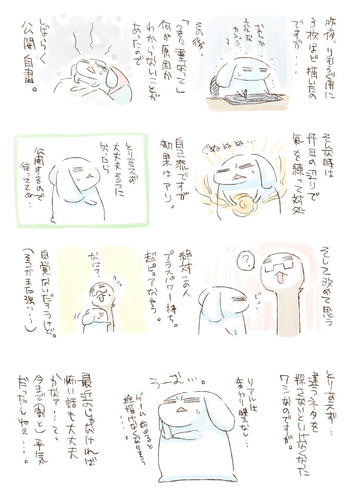 昨夜、
3枚ほど描いたの
ですが…
その後、
何が原因か
わからないことが
あったので
しばらく
公開自粛。
そんな時は
丹田の辺りで
氣を練って対処
ぬぬぬぬ…
自己流ですが
効果はアリ。
とりあえず
大丈夫そうに
なったら
公開するので
待っててね…
そして改めて思う
?
絶対この人
プラスパワー持ち。
超ピュア
なに?
自覚ないだろうけど。
(そこがまた強い…)
とりあえず…
違うネタを
探さないといけなくなった
ワシなのですが。
リアルは
変わり映えなし…
うーむ…。
ゲーム始めると
絵描けなくなりそう
最近のじゃなければ
怖い話も大丈夫
かなぁ…って、
今まで(割と)平気
だったしねぇ…。